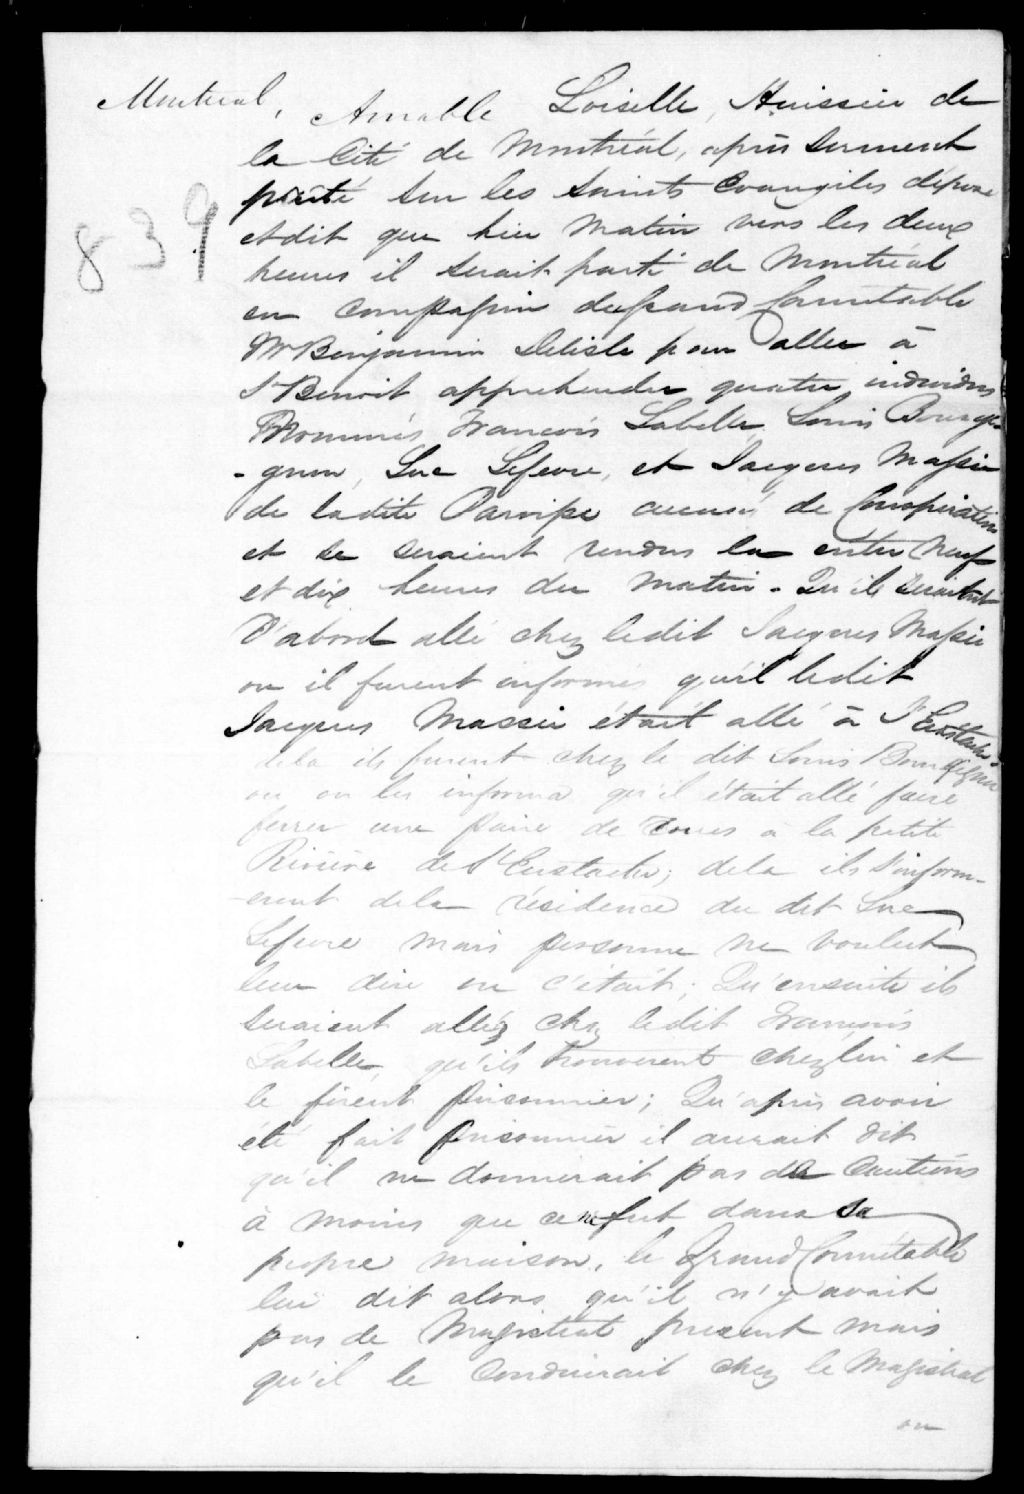 Montreal, Amable Loiselle, Huissier de
la Cité de Montréal, après serment
prêté sur les Saints Evangiles dépose
839
et dit que hier matin vers les deux
heures il serait parti de Montréal
en compagnie du grand Connétable
Mr Benjamin Delisle pour aller à
St Benoit apprehender quatre individus
Nommés Francois Labelle, Louis Bourgi-
-gnon, Luc Lefevre, et Jacques Massie
de ladite Paroisse accusés de Conspiration
et se seraient rendus la entre neuf
et dix heures du matin - Qu'ils seraient
D'abord allé chez ledit Jacques Massie
ou il furent informés qu'il ledit
Jacques Massie était allé à St Eustache
dela ils furent chez le dit Louis Bourgignon
ou on les informa qu'il était allé faire
ferrer une paire de roues à la petite
Rivière de St Eustache; dela ils s'inform-
-erent dela résidence du dit Luc
Lefevre mais personne ne voulut
leur dire ou c'était; Qu'ensuite ils
seraient allés chez ledit François
Labelle, qu'ils trouverent chez lui et
le firent prisonnier; Qu'après avoir
été fait prisonnier il aurait dit
qu'il ne donnerait pas de Cautions
à moins que ce ne fut dans sa
propre maison, le Grand Connétable
lui dit alors qu'il n'y avait
pas de Magistrat present mais
qu'il le Conduirait chez le Magistrat
ou